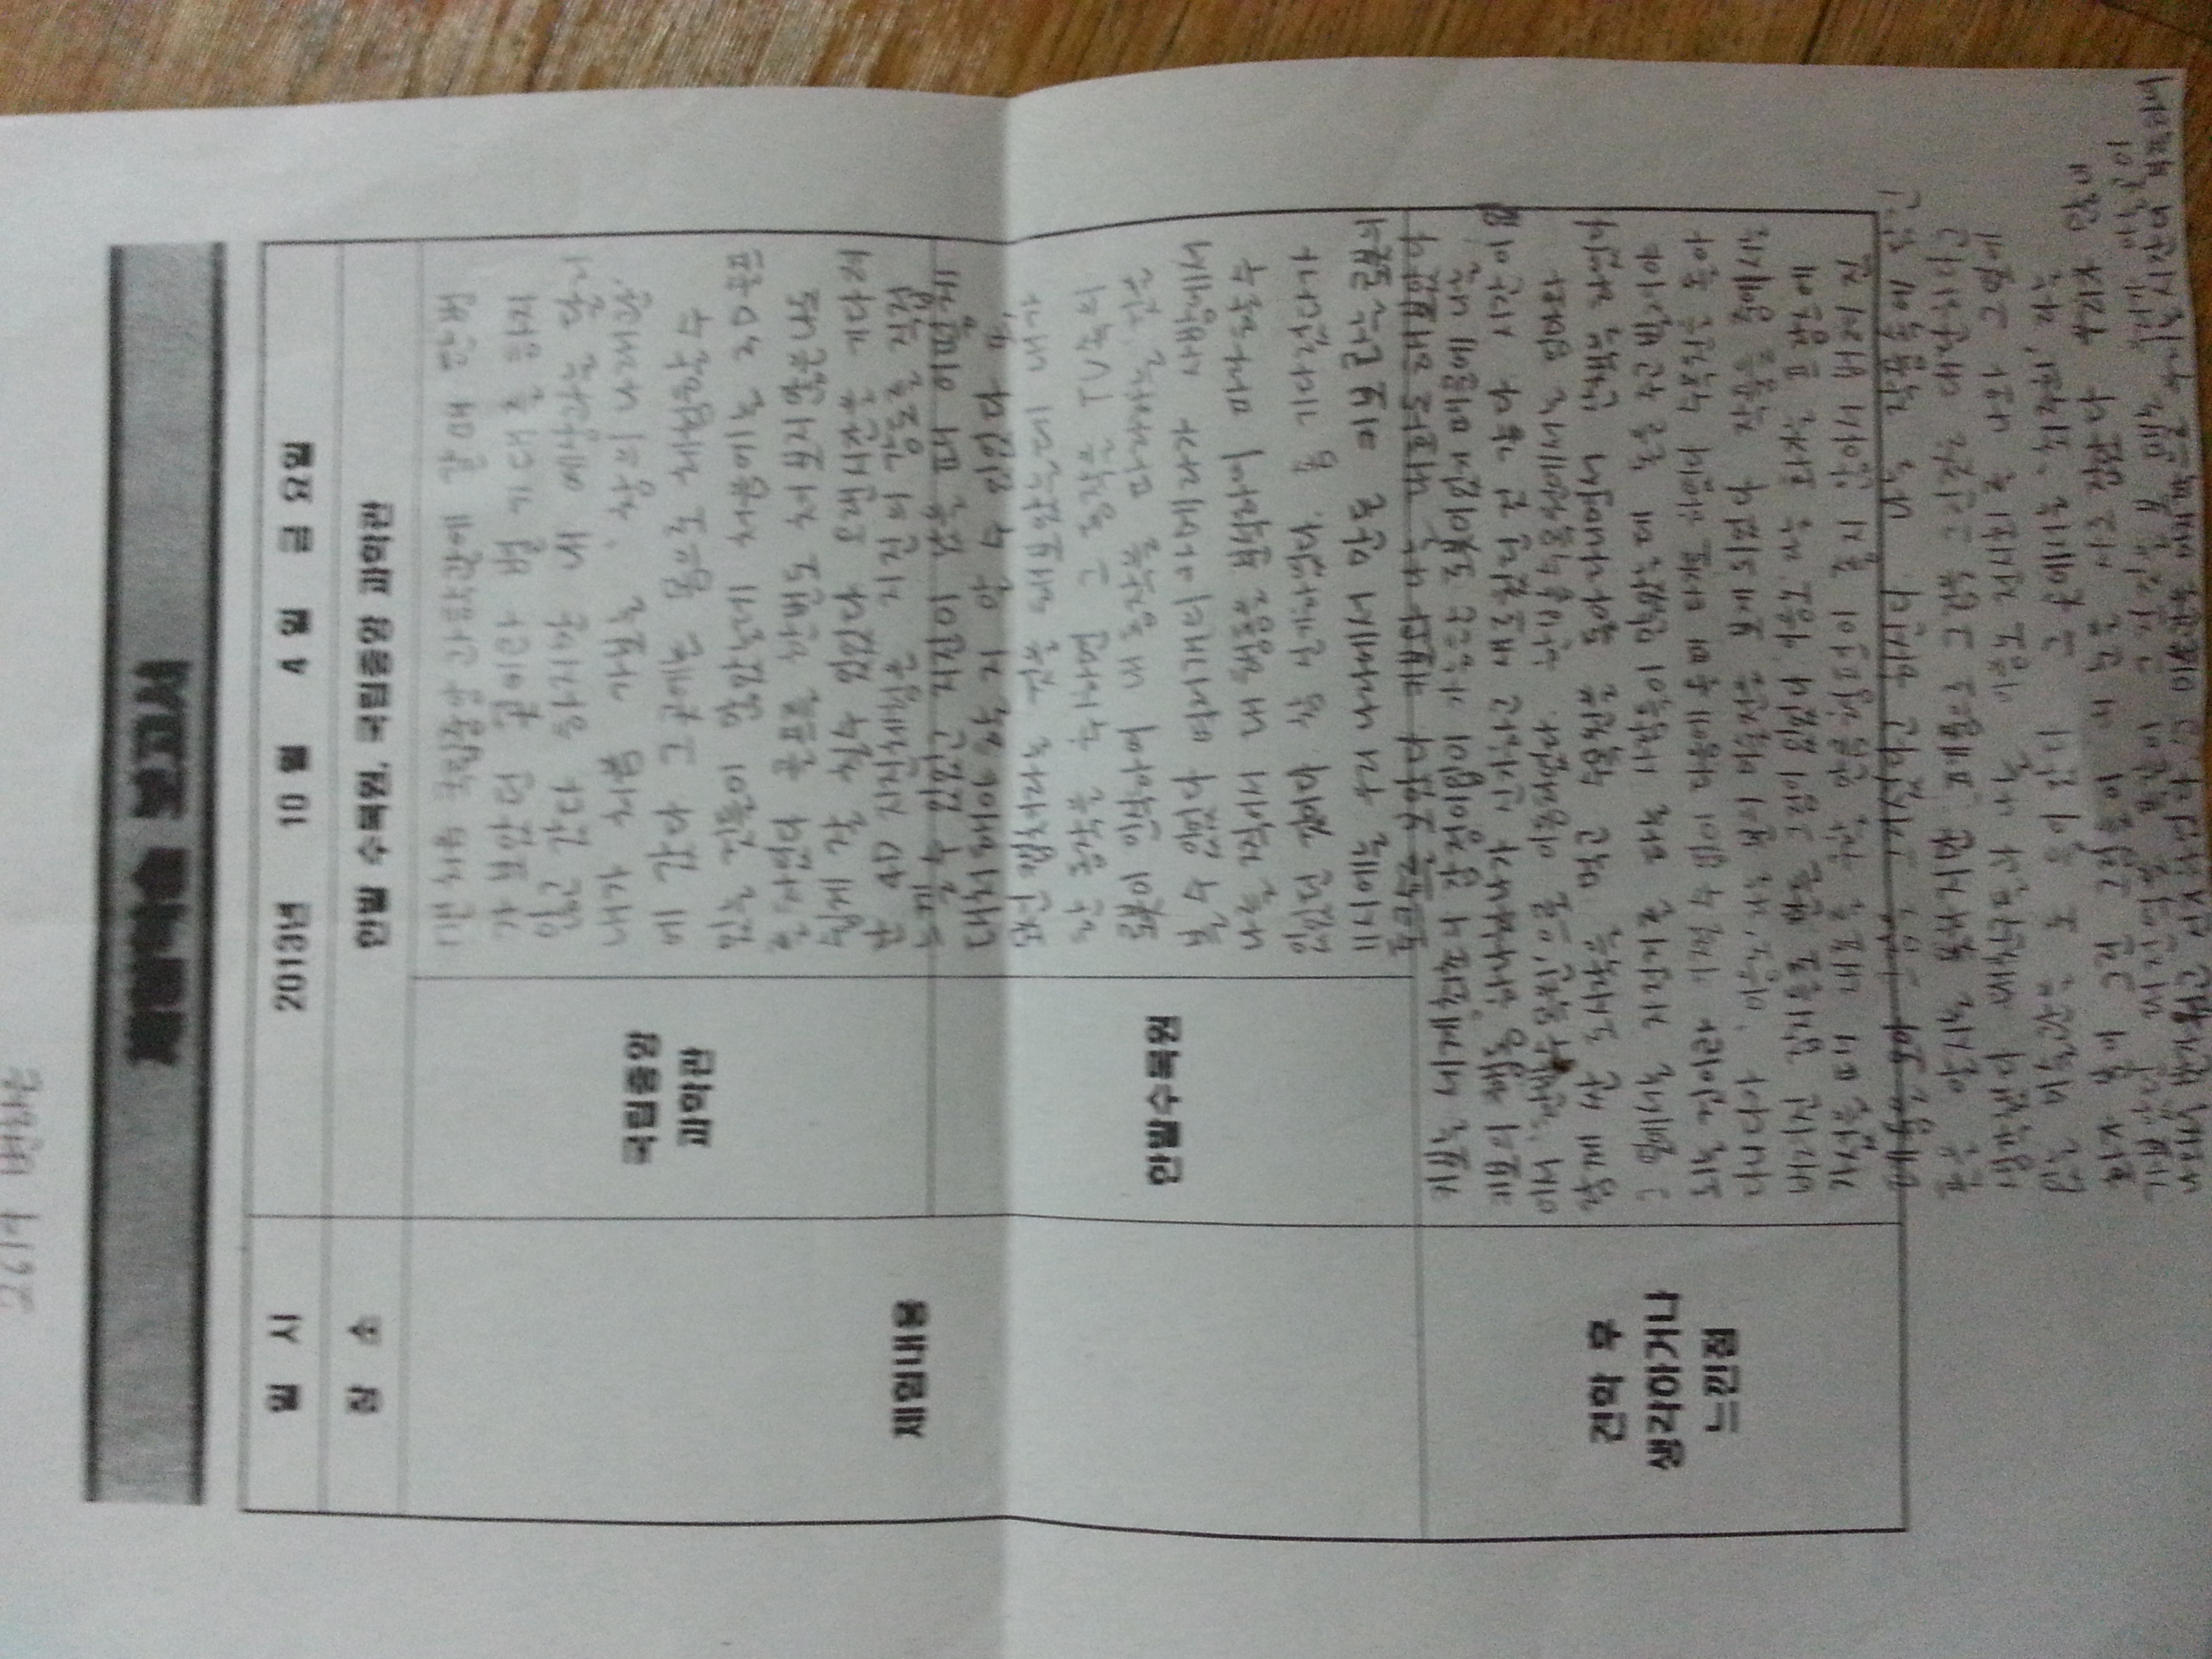 체험학습 보고서
일 시 2013년 10월 4일 금요일
장 소 한밭 수목원, 국립중앙 과학관
체험내용
국립중앙
과학관
맨 처음 국립중앙과학관에 갈때 한번
가 보았던 곳이라 별 기대를 하지
않고 갔다 하지만 내 예상과는 달리
내가 처음 가보는 '창의나래관'
에 갔다 그곳에는 몸으로 체험할수
있는 것들이 많았는데 처음에는 3D골프
를 하였다 골프를 한번도 쳐 보지않은나도
쉽게 잘 칠수 있었다 오랜시간을 기다려
한 4D 지진체험은 지진의 강도를 직접
느낄 수 있었고 지진이 났을 때 어떻게
대처해야 하는 지 알 수 있었다 또,
한밭수목원
모션캡쳐라는 것을 해보았는데 내가
한 동작을 취하면 그 동작을 TV속의
로봇이 인식하여 내 동작을 따라하는 것을
볼 수 있었다 여러개의 카메라가 사방에서
나를 찍어서 내 행동을 분석하여 따라할수
있었던 것이다 참 신기하였다. 좀 기다렸다가
11시에는 우리 나라에서 만든 키보라는 로봇의
토크쇼를 보았다 키보와 나는 대화도 해보았다
견학 후
생각하거나
느낀점
키보는 세계최초의 감정이입이 가능한 로봇이었기 때문에 나는
키보의 행동 하나하나가 신기하고 새로웠던 것 같다. 시간이
에서 '한밭수목원'으로 이동하였다. 한밭수목원에서는 엄마와
함께 싼 도시락을 먹고 수목원을 돌아다니면서 산책을 하였다
그 옆에서는 자전거를 타는 사람들이 많았는데 돈을 주고 빌려야
되는 것이라 어쩔 수 없이 다음에 올때 타기로 하였다 수목원을 돌아
다니다가 '이응노'라는 분의 미술전을 보게되었다 작품들 중에서는
버려진 잡지들로 만든 그림이 있었다 '이응노'라는 화가는 프랑스에
가셨을 때 재료를 구할 만큼형편이 좋지 않아서 버려 진
폐품을 모아 그림을 그리셨다고 하신다 나는 작품속에 담긴
뜻은 알지는 못하지만 폐품으로 그림을 그린것은 대단하다고
생각했다 내친구들과 나는 이응노 전시회를 나와 그옆에
있는 미술관을 또 들어 갔다 그 곳에서는 '최주희' 라는
화가 분이 그린 그림들이 내 눈을 사로잡았다 우리가 많이
가보았던 대전역을 그린것을 볼 때는 우리가 아는곳이
나와서 반가웠고 신기하였다. 그 미술관을 마지막으로 우리는 시간이